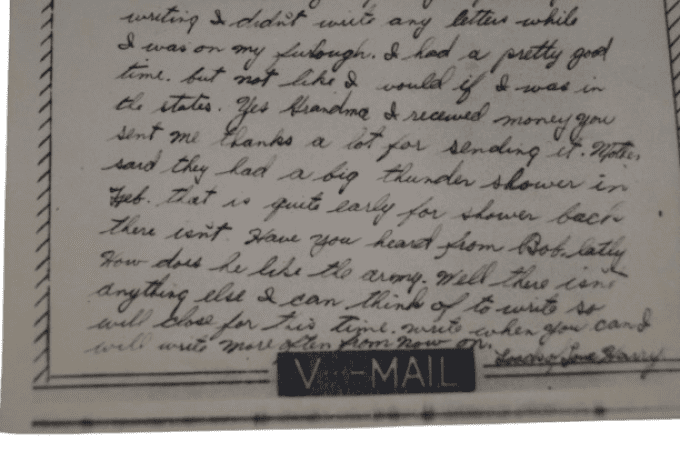 writing I didn't write any letters while
I was on my furlough. I had a pretty good
time. but not like I would if I was in
the states. Yes Grandma I received money you
sent me thanks a lot for sending it. Mother
said they had a big thunder shower in
Feb. that is quite early for shower back
there isn't. Have you heard from Bob latly
How does he like the army. Well there isn't
anything else I can think of to write so
will close for tis time. write when you can I
will write more often from now on.
Loads of Love Harry
V-MAIL